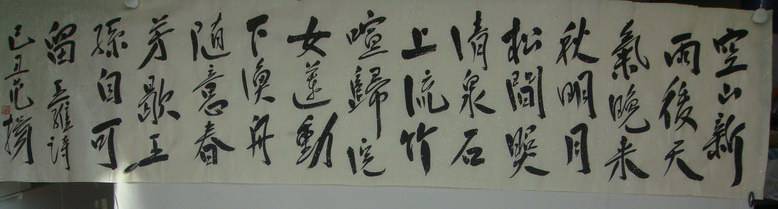 空山新
雨後天
氣晚来
秋明月
松間照
清泉石
上流竹
喧歸浣
女蓮動
下漁舟
随意春
芳歇王
孫自可
留 王維詩
己丑范揚